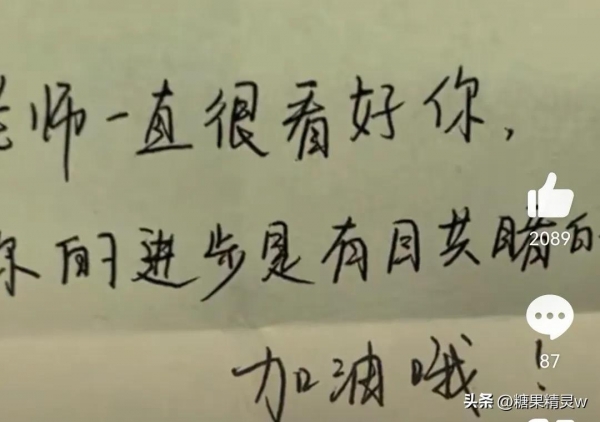 老师一直很看好你，
你的进步是有目共睹的
加油哦！
2089
87
头条 @糖果精灵w